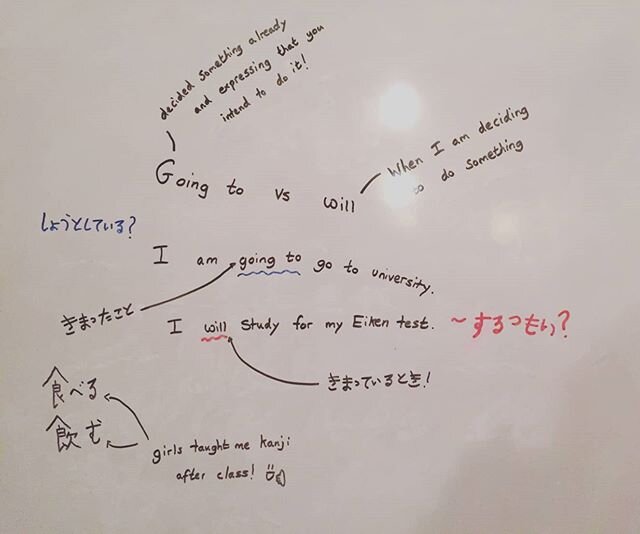 decided something already
and expressing that you
intend to do it!
When I am deciding
to do something
Going to vs will
しようとしている?
I am going to go to university.
きまったこと
I will study for my Eiken test. ～するつもり?
きまっているとき!
食べる
飲む
girls taught me kanji
after class!